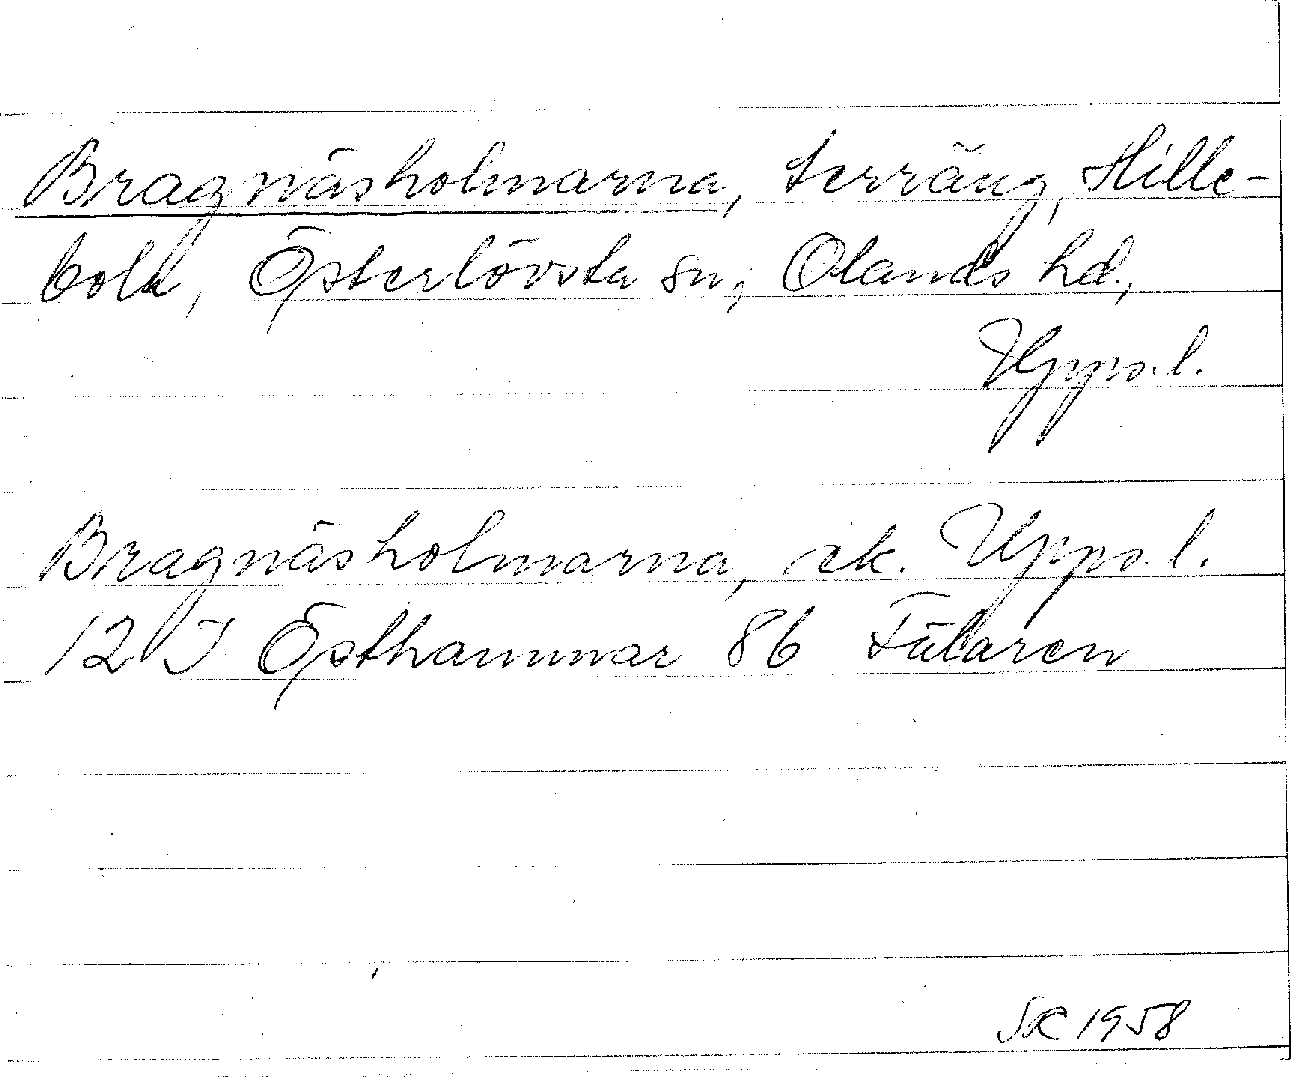 Bragnäsholmarna, terräng, Hille-
bola, Österlövsta sn, Olands hd.,
Upps.l.
Bragnäsholmarna, ek. Upps.l.
12 I Östhammar 86 Fälaren
SK 1958